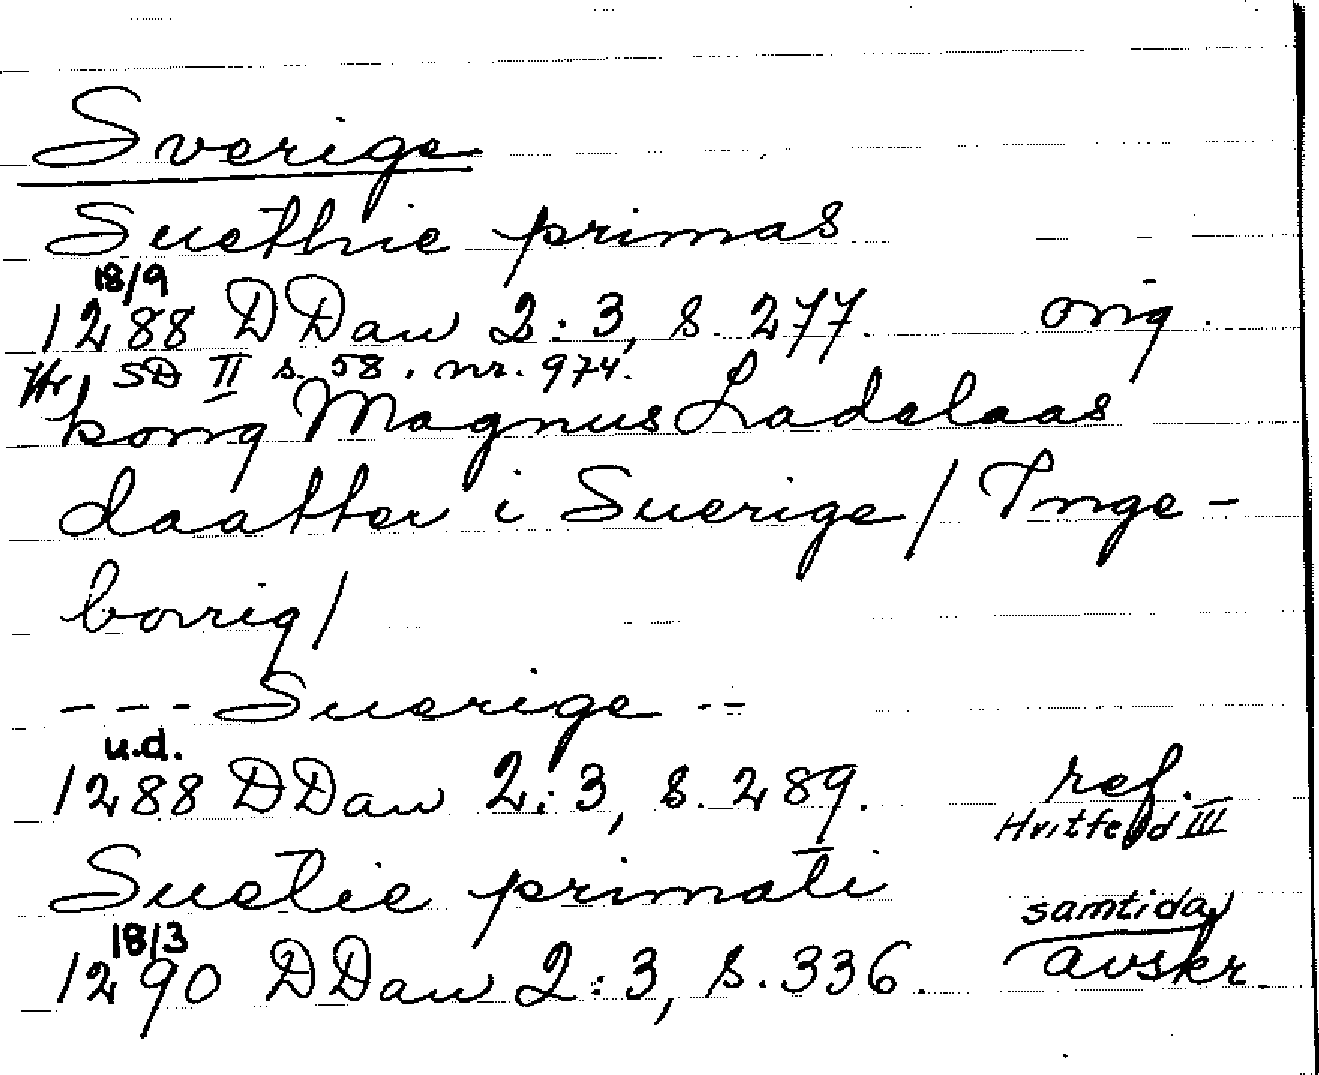 Sverige
Suethie primas
18/9
1288 DDan 2:3, s. 277. orig.
Jfr SD II s. 58. nr. 974.
kong Magnus Ladelaas
daatter i Suerige / Inge-
borrig /
--- Suerige --
u.d.
1288 DDan 2:3, s. 289. ref.
Hvitfeld III
Suetie primati
samtida
18/3
1290 DDan 2:3, s. 336. avskr.